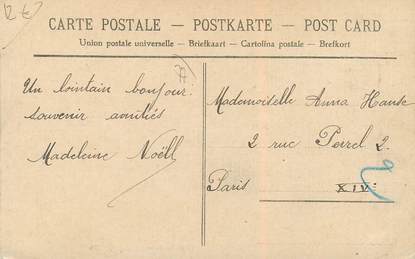 2€
CARTE POSTALE — POSTKARTE — POST CARD
Union postale universelle — Briefkaart — Cartolina postale — Brefkort
Un lointain bonjour.
souvenir amitiés
Madeleine Noëll
Mademoiselle Anna Hause
2 rue Perrel 2
Paris XIVe